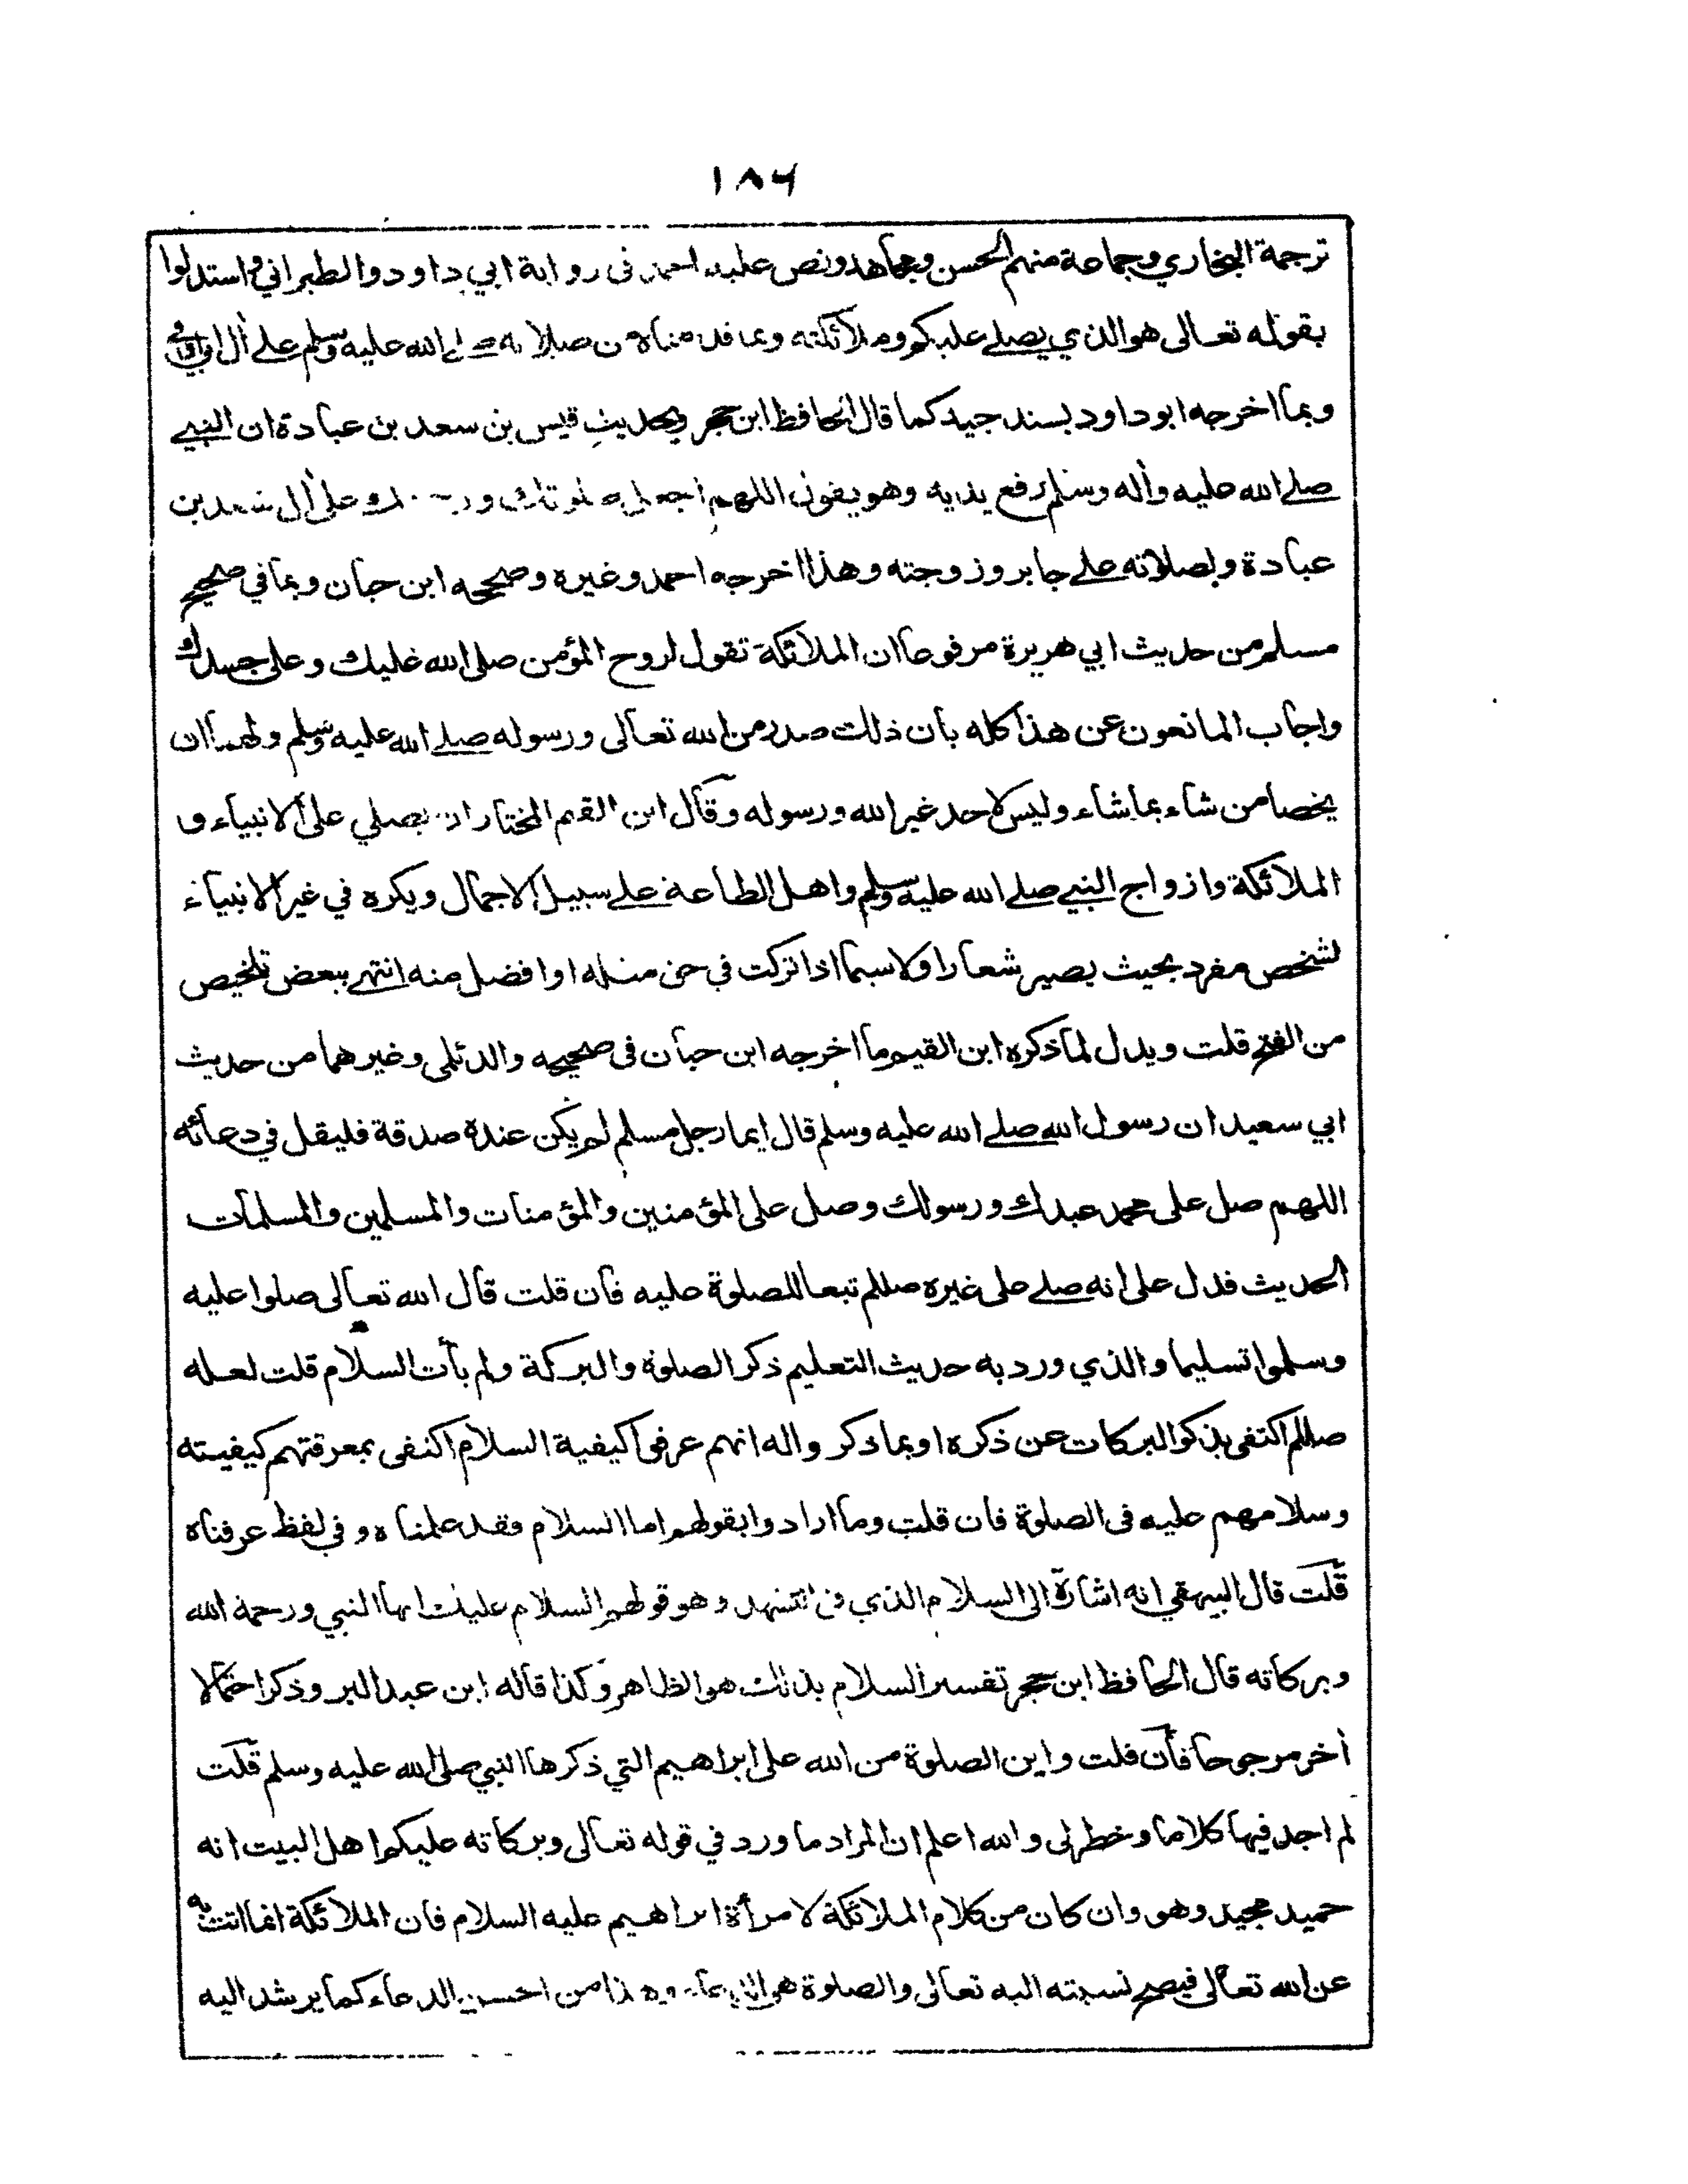 ١٨٦
ترجمة البخاري وجماعة منهم الحسن ومجاهد ونص عليه احمد في رواية ابي داود والطبراني واستدلوا
بقوله تعالى هو الذي يصلے عليكم وملآئكته وبما قدمناه من صلاته صلے الله عليه وسلم علے أل ابي اوفى
وبمآ اخرجه ابو داود بسند جيد كما قال الحافظ ابن حجر وبحديث قيس بن سعد بن عبادة ان النبے
صلے الله عليه وأله وسلم رفع يديه وهو يقول اللهم اجعل صلوتك ورحمتك على أل سعد بن
عبادة وبصلاته علے جابر وزوجته وهذا اخرجه احمد وغيره وصححه ابن حبان وبما في صحيح
مسلم من حديث ابي هريرة مرفوعا ان الملائكة تقول لروح المؤمن صلى الله عليك وعلى جسدك
واجاب المانعون عن هذا كله بان ذلك صدر من الله تعالى ورسوله صلے الله عليه وسلم ولهمآ ان
يخصا من شاء بما شاء وليس لاحد غير الله ورسوله وقال ابن القيم المختار ان يصلي على الانبياء و
الملآئكة وازواج النبے صلے الله عليه وسلم واهل الطاعة علے سبيل الاجمال ويكره في غير الانبياء
لشخص مفرد بحيث يصير شعارا ولا سيما اذا تركت في حق مثله او افضل منه انتهے ببعض تلخيص
من الفتح قلت ويدل لما ذكره ابن القيم مآ اخرجه ابن حبان فى صحيحه والدئلى وغيرهما من حديث
ابي سعيد ان رسول الله صلے الله عليه وسلم قال ايما رجل مسلم لم يكن عنده صدقة فليقل في دعآئه
اللهم صل على محمد عبدك ورسولك وصل على المؤمنين والمؤمنات والمسلمين والمسلمات
الحديث فدل على انه صلے على غيره صللم تبعا للصلوة عليه فان قلت قال الله تعالى صلوا عليه
وسلموا تسليما والذي ورد به حديث التعليم ذكر الصلوة والبركة ولم يأت السلام قلت لعله
صللم اكتفى بذكر البركات عن ذكره او بما ذكر واله انهم عرفوا كيفية السلام اكتفى بمعرفتهم كيفيته
وسلامهم عليه فى الصلوة فان قلت ومآ ارادوا بقولهم اما السلام فقد علمناه و في لفظ عرفناه
قلت قال البيهقي انه اشارة الى السلام الذي في التشهد وهو قولهم السلام عليك ايها النبي ورحمة الله
وبركاته قال الحافظ ابن حجر تفسير السلام بذلك هو الظاهر وكذا قاله ابن عبد البر وذكر احتمالا
أخر مرجوحا فان قلت واين الصلوة من الله على ابراهيم التي ذكرها النبي صلى الله عليه وسلم قلت
لم اجد فيها كلاما وخطر لى والله اعلم ان المراد ما ورد في قوله تعالى وبركاته عليكم اهل البيت انه
حميد مجيد وهو وان كان من كلام الملائكة لامرأة ابراهيم عليه السلام فان الملائكة انما اتت به
عن الله تعالى فيصح نسبته اليه تعالى والصلوة هي الدعآء وهذا من احسن الدعاء كما يرشد اليه